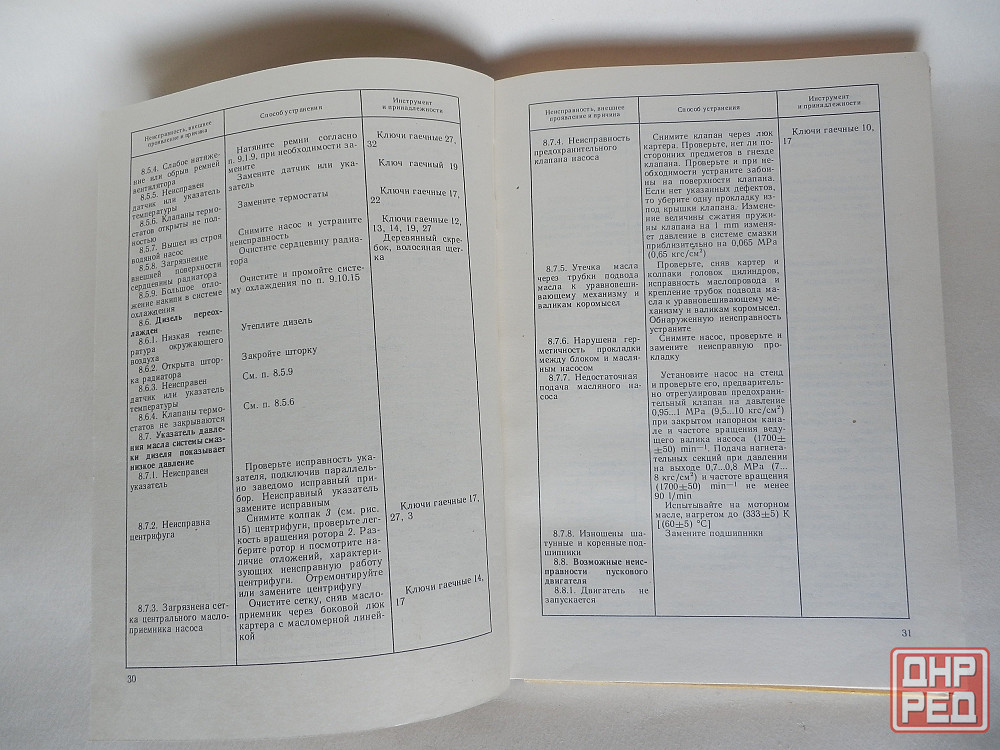 Неисправность, внешнее
проявление и причина
Способ устранения
Инструмент
и принадлежности
8.5.4. Слабое натяже-
ние или обрыв ремней
вентилятора
Натяните ремни согласно
п. 9.1.9, при необходимости за-
мените
Ключи гаечные 27,
32
8.5.5. Неисправен
датчик или указатель
температуры
Замените датчик или ука-
затель
Ключ гаечный 19
8.5.6. Клапаны термо-
статов открыты не пол-
ностью
Замените термостаты
Ключи гаечные 17,
22
8.5.7. Вышел из строя
водяной насос
Снимите насос и устраните
неисправность
Ключи гаечные 12,
13, 14, 19, 27
8.5.8. Загрязнение
внешней поверхности
сердцевины радиатора
Очистите сердцевину радиа-
тора
Деревянный скре-
бок, волосяная щет-
ка
8.5.9. Большое отло-
жение накипи в системе
охлаждения
Очистите и промойте систе-
му охлаждения по п. 9.10.15
8.6. Дизель переох-
лажден
8.6.1. Низкая темпе-
ратура окружающего
воздуха
Утеплите дизель
8.6.2. Открыта штор-
ка радиатора
Закройте шторку
8.6.3. Неисправен
датчик или указатель
температуры
См. п. 8.5.9
8.6.4. Клапаны термо-
статов не закрываются
См. п. 8.5.6
8.7. Указатель давле-
ния масла системы смаз-
ки дизеля показывает
низкое давление
8.7.1. Неисправен
указатель
Проверьте исправность ука-
зателя, подключив параллель-
но заведомо исправный при-
бор. Неисправный указатель
замените исправным
8.7.2. Неисправна
центрифуга
Снимите колпак 3 (см. рис.
15) центрифуги, проверьте лег-
кость вращения ротора 2. Раз-
берите ротор и посмотрите на-
личие отложений, характери-
зующих неисправную работу
центрифуги. Отремонтируйте
или замените центрифугу
Ключи гаечные 17,
27, 3
8.7.3. Загрязнена сет-
ка центрального масло-
приемника насоса
Очистите сетку, сняв масло-
приемник через боковой люк
картера с масломерной линей-
кой
Ключи гаечные 14,
17
30
Неисправность, внешнее
проявление и причина
Способ устранения
Инструмент
и принадлежности
8.7.4. Неисправность
предохранительного
клапана насоса
Снимите клапан через люк
картера. Проверьте, нет ли по-
сторонних предметов в гнезде
клапана. Проверьте и при не-
обходимости устраните забои-
ны на поверхности клапана.
Если нет указанных дефектов,
то уберите одну прокладку из-
под крышки клапана. Измене-
ние величины сжатия пружи-
ны клапана на 1 mm изменя-
ет давление в системе смазки
приблизительно на 0,065 MPa
(0,65 кгс/см²)
Ключи гаечные 10,
17
8.7.5. Утечка масла
через трубки подвода
масла к уравновеши-
вающему механизму и
валикам коромысел
Проверьте, сняв картер и
колпаки головок цилиндров,
исправность маслопровода и
крепление трубок подвода мас-
ла к уравновешивающему ме-
ханизму и валикам коромысел.
Обнаруженную неисправность
устраните
8.7.6. Нарушена гер-
метичность прокладки
между блоком и масля-
ным насосом
Снимите насос, проверьте и
замените неисправную про-
кладку
8.7.7. Недостаточная
подача масляного на-
соса
Установите насос на стенд
и проверьте его, предваритель-
но отрегулировав предохрани-
тельный клапан на давление
0,95...1 MPa (9,5...10 кгс/см²)
при закрытом напорном кана-
ле и частоте вращения веду-
щего валика насоса (1700±
±50) min—¹. Подача нагнета-
тельных секций при давлении
на выходе 0,7...0,8 MPa (7...
8 кгс/см²) и частоте вращения
(1700±50) min—¹ не менее
90 l/min
Испытывайте на моторном
масле, нагретом до (333±5) K
[(60±5) °C]
8.7.8. Изношены ша-
тунные и коренные под-
шипники
Замените подшипники
8.8. Возможные неис-
правности пускового
двигателя
8.8.1. Двигатель не
запускается
31
ДНР
РЕД